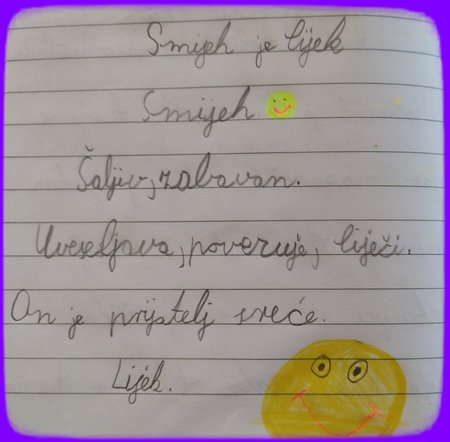 Smijeh je lijek
Smijeh
Šaljiv, zabavan.
Uveseljava, povezuje, liječi.
On je prijatelj sreće.
Lijek.